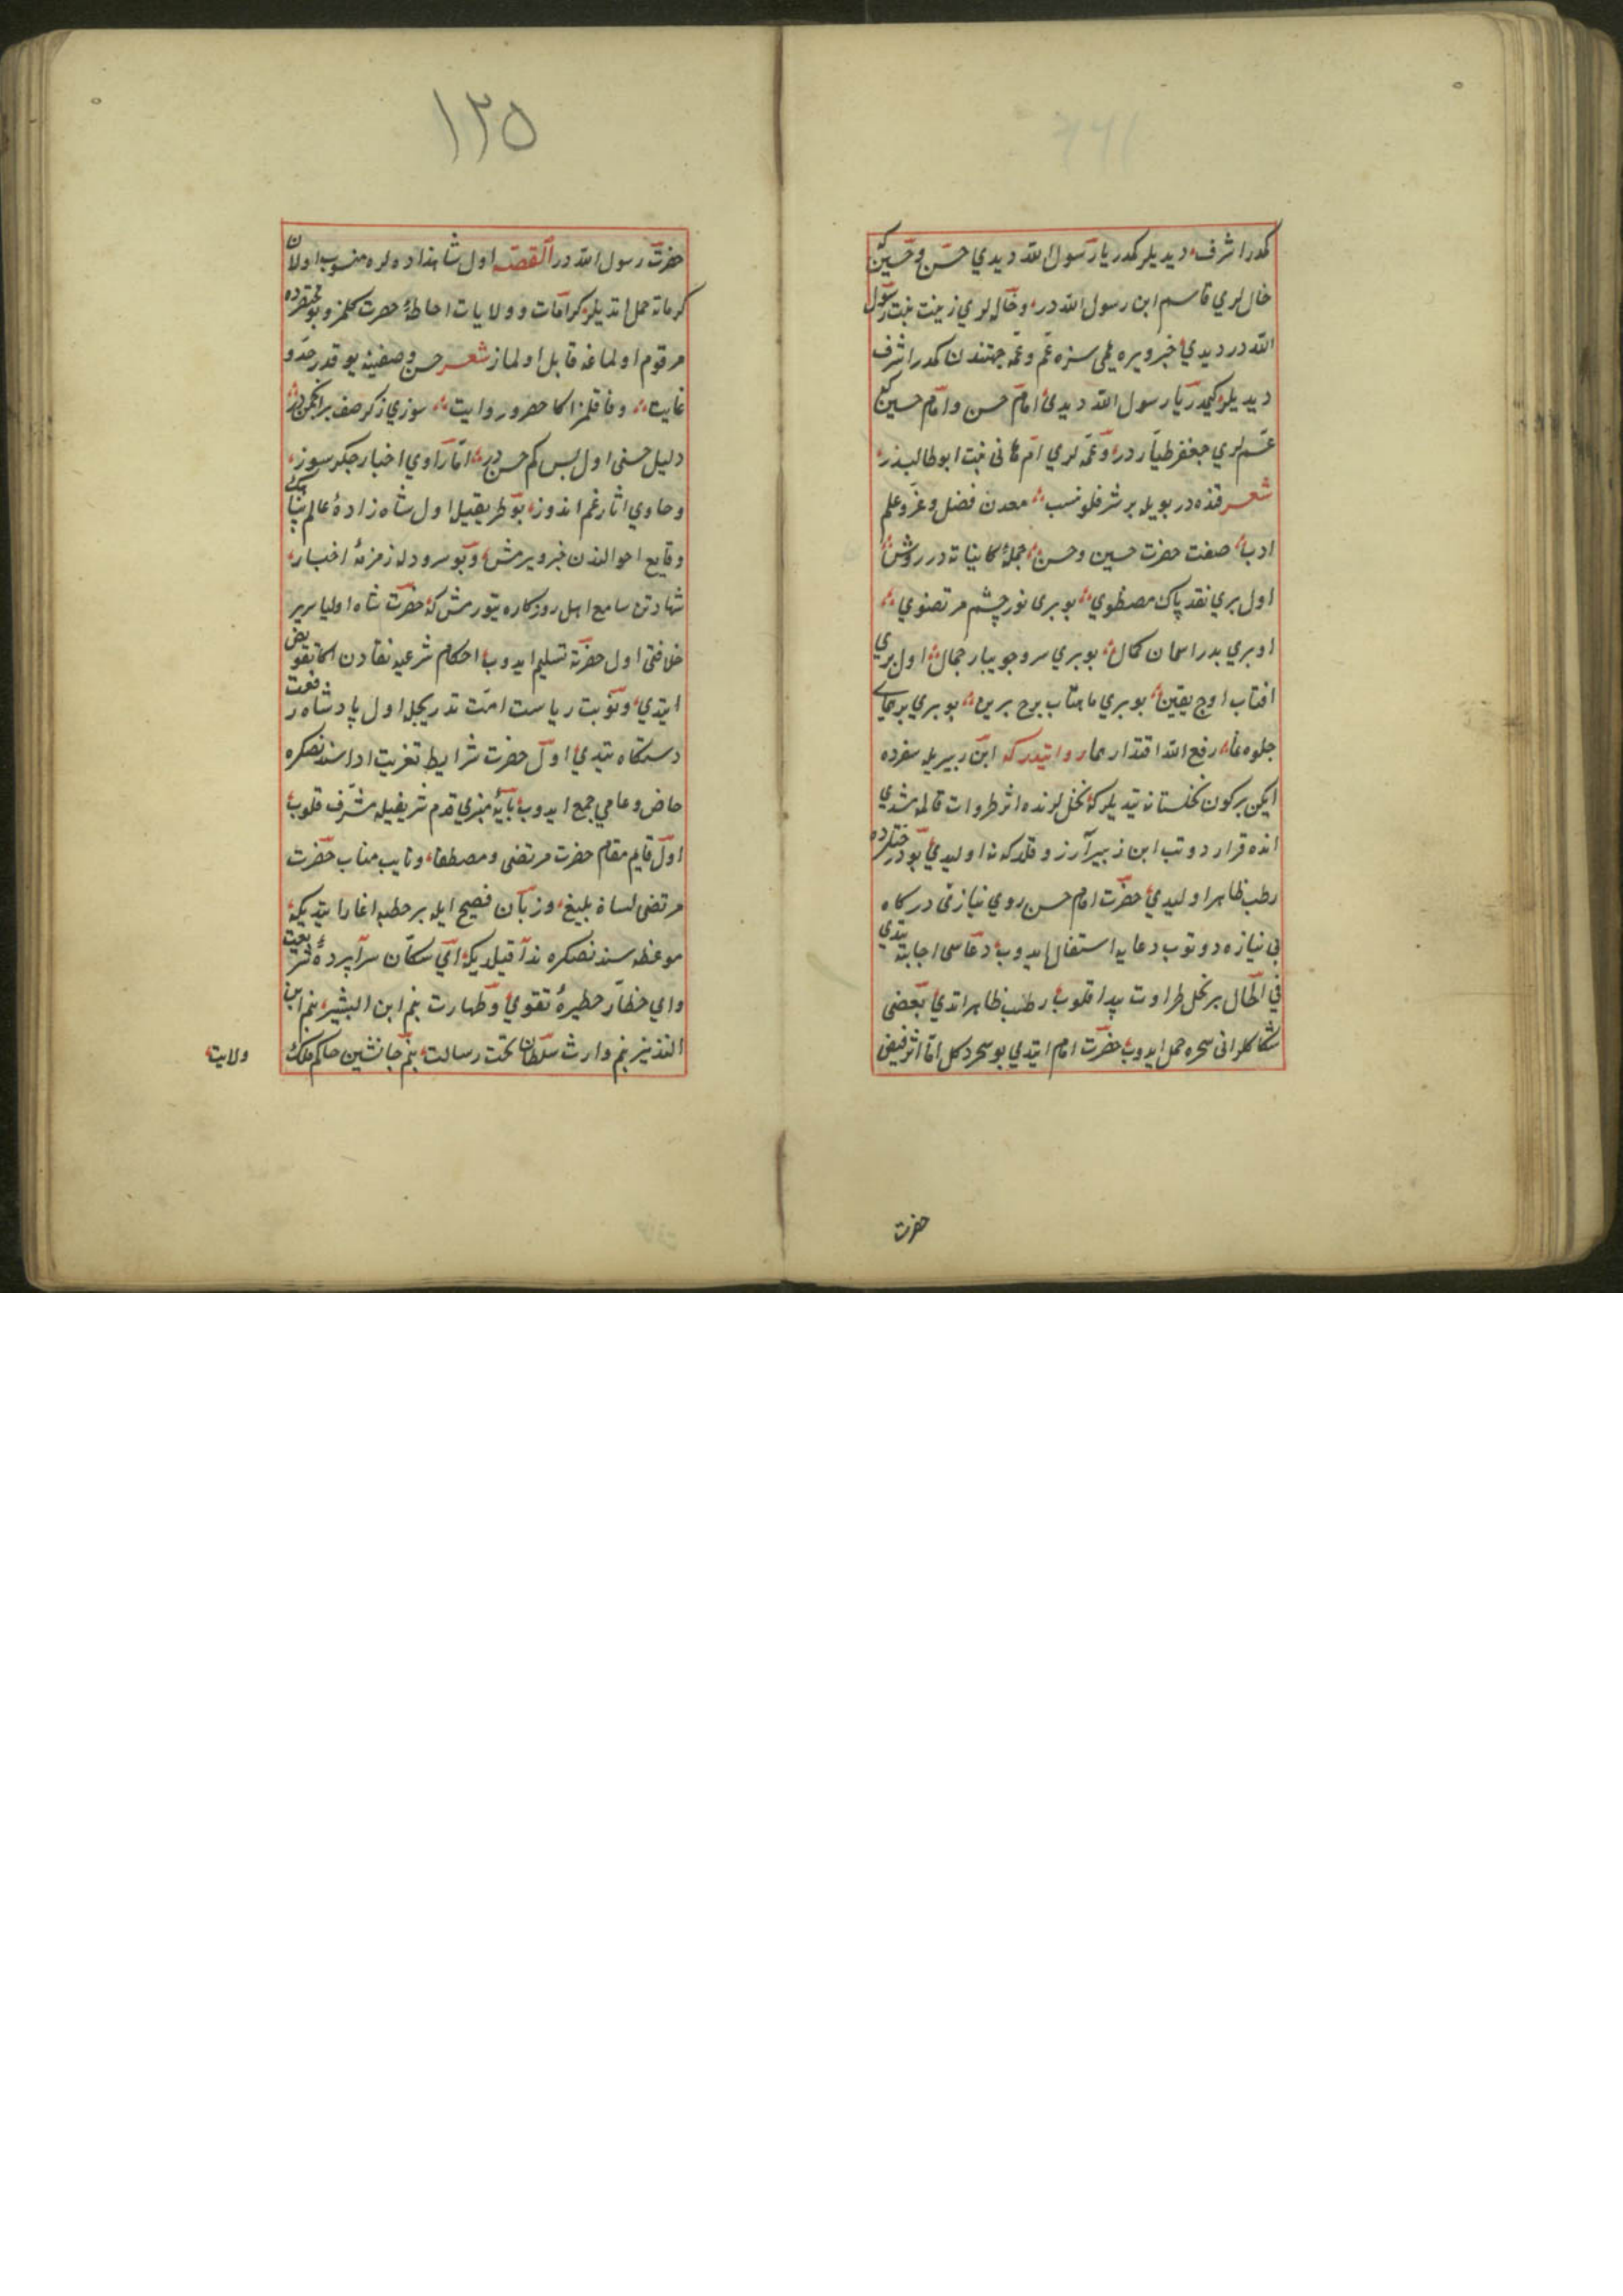 كمدر اشرف ديديلر كمدر يا رسول الله ديدي حسن و حسين كه
خال لري قاسم ابن رسول الله در و خاله لري زينت بنت رسول
الله در ديدي خبر ويره يمي سزه عم و عمه جهتندن كمدر اشرف
ديديلر كيمدر يا رسول الله ديدي امام حسن و امام حسين كه
عم لري جعفر طيار در و عمه لري ام هانى بنت ابو طالبدر
شعر قنده در بويله بر شرفلو نسب معدن فضل و عز و علم
ادب صفت حضرت حسين و حسن جملۀ كايناته در روشن
اول بري نقد پاك مصطفوي بو برى نور چشم مرتضوي
او بري بدر اسمان كمال بو بري سرو جويبار جمال اول بري
افتاب اوج يقين بو بري ماهتاب برج برين بو بري بر
جلوه رفع الله اقتدار روايتدركه ابن زبيريله سفرده
ايكن بر كون نخلستانه يتديلر كه نخل لرنده اثر طراوت قالمامشدي
انده قرار دوتب ابن زبير آرزو قلدى كه نه اوليدي بو درختلرده
رطب ظاهر اوليدي حضرت امام حسن روي نيازنى دركاه
بى نيازه دوتوب دعايه اشتغال ايدوب دعاسى اجابته يتدي
في الحال بر نخل طراوت پيدا قلوب رطب ظاهر اتدي بعضى
شكاكلر انى سحره حمل ايدوب حضرت امام ايتدي بو سحر دكل اما اثر فيض
حضرت
١٢٥
حضرت رسول الله در القصه اول شاهزاده لره منسوب اولان
كرماته حمل اتديلر كرامات و ولايات احاطۀ حصرت كلمز و بو مختصرده
مرقوم اولماغه قابل اولماز شعر حسن وصفينه يوقدر حد و
غايت وفا قلمز اكا حصر و روايت سوزي ذكر صف بر انجمن در
دليل حسنى اول بس كم حسن در اما راوي اخبار جكر سوز
و حاوي اثار غم اندوز بو طريقيله اول شاه زادۀ عالم پناهك
وقايع احوالندن خبر ويرمش و بو سرودله زمزمۀ اخبار
شهادتن سامع اهل روزكاره يتورمش كه حضرت شاه اوليا سرير
خلافتى اول حضرته تسليم ايدوب احكام شرعيه نفادن اكا تفويض
ايتدي و نوبت رياست امت تدريجله اول پادشاه رفعت
دستكاه يتدي اول حضرت شرايط تعزيت اداسندنصكره
خاص و عامي جمع ايدوب پايۀ منبري قدم شريفيله مشرف قلوب
اول قايم مقام حضرت مرتضى و مصطفا و نايب مناب حضرت
مرتضى لسان بليغ و زبان فصيح ايله بر خطبه اغاز ايتديكه
موعظه سندنصكره ندا قيلديكه اي سكان سراپردۀ شريعت
و اي حظار حظيرۀ تقوي و طهارت بنم ابن البشير بنم ابن
النذير بنم وارث سلطان تخت رسالت بنم جانشين حاكم ملك
ولايت